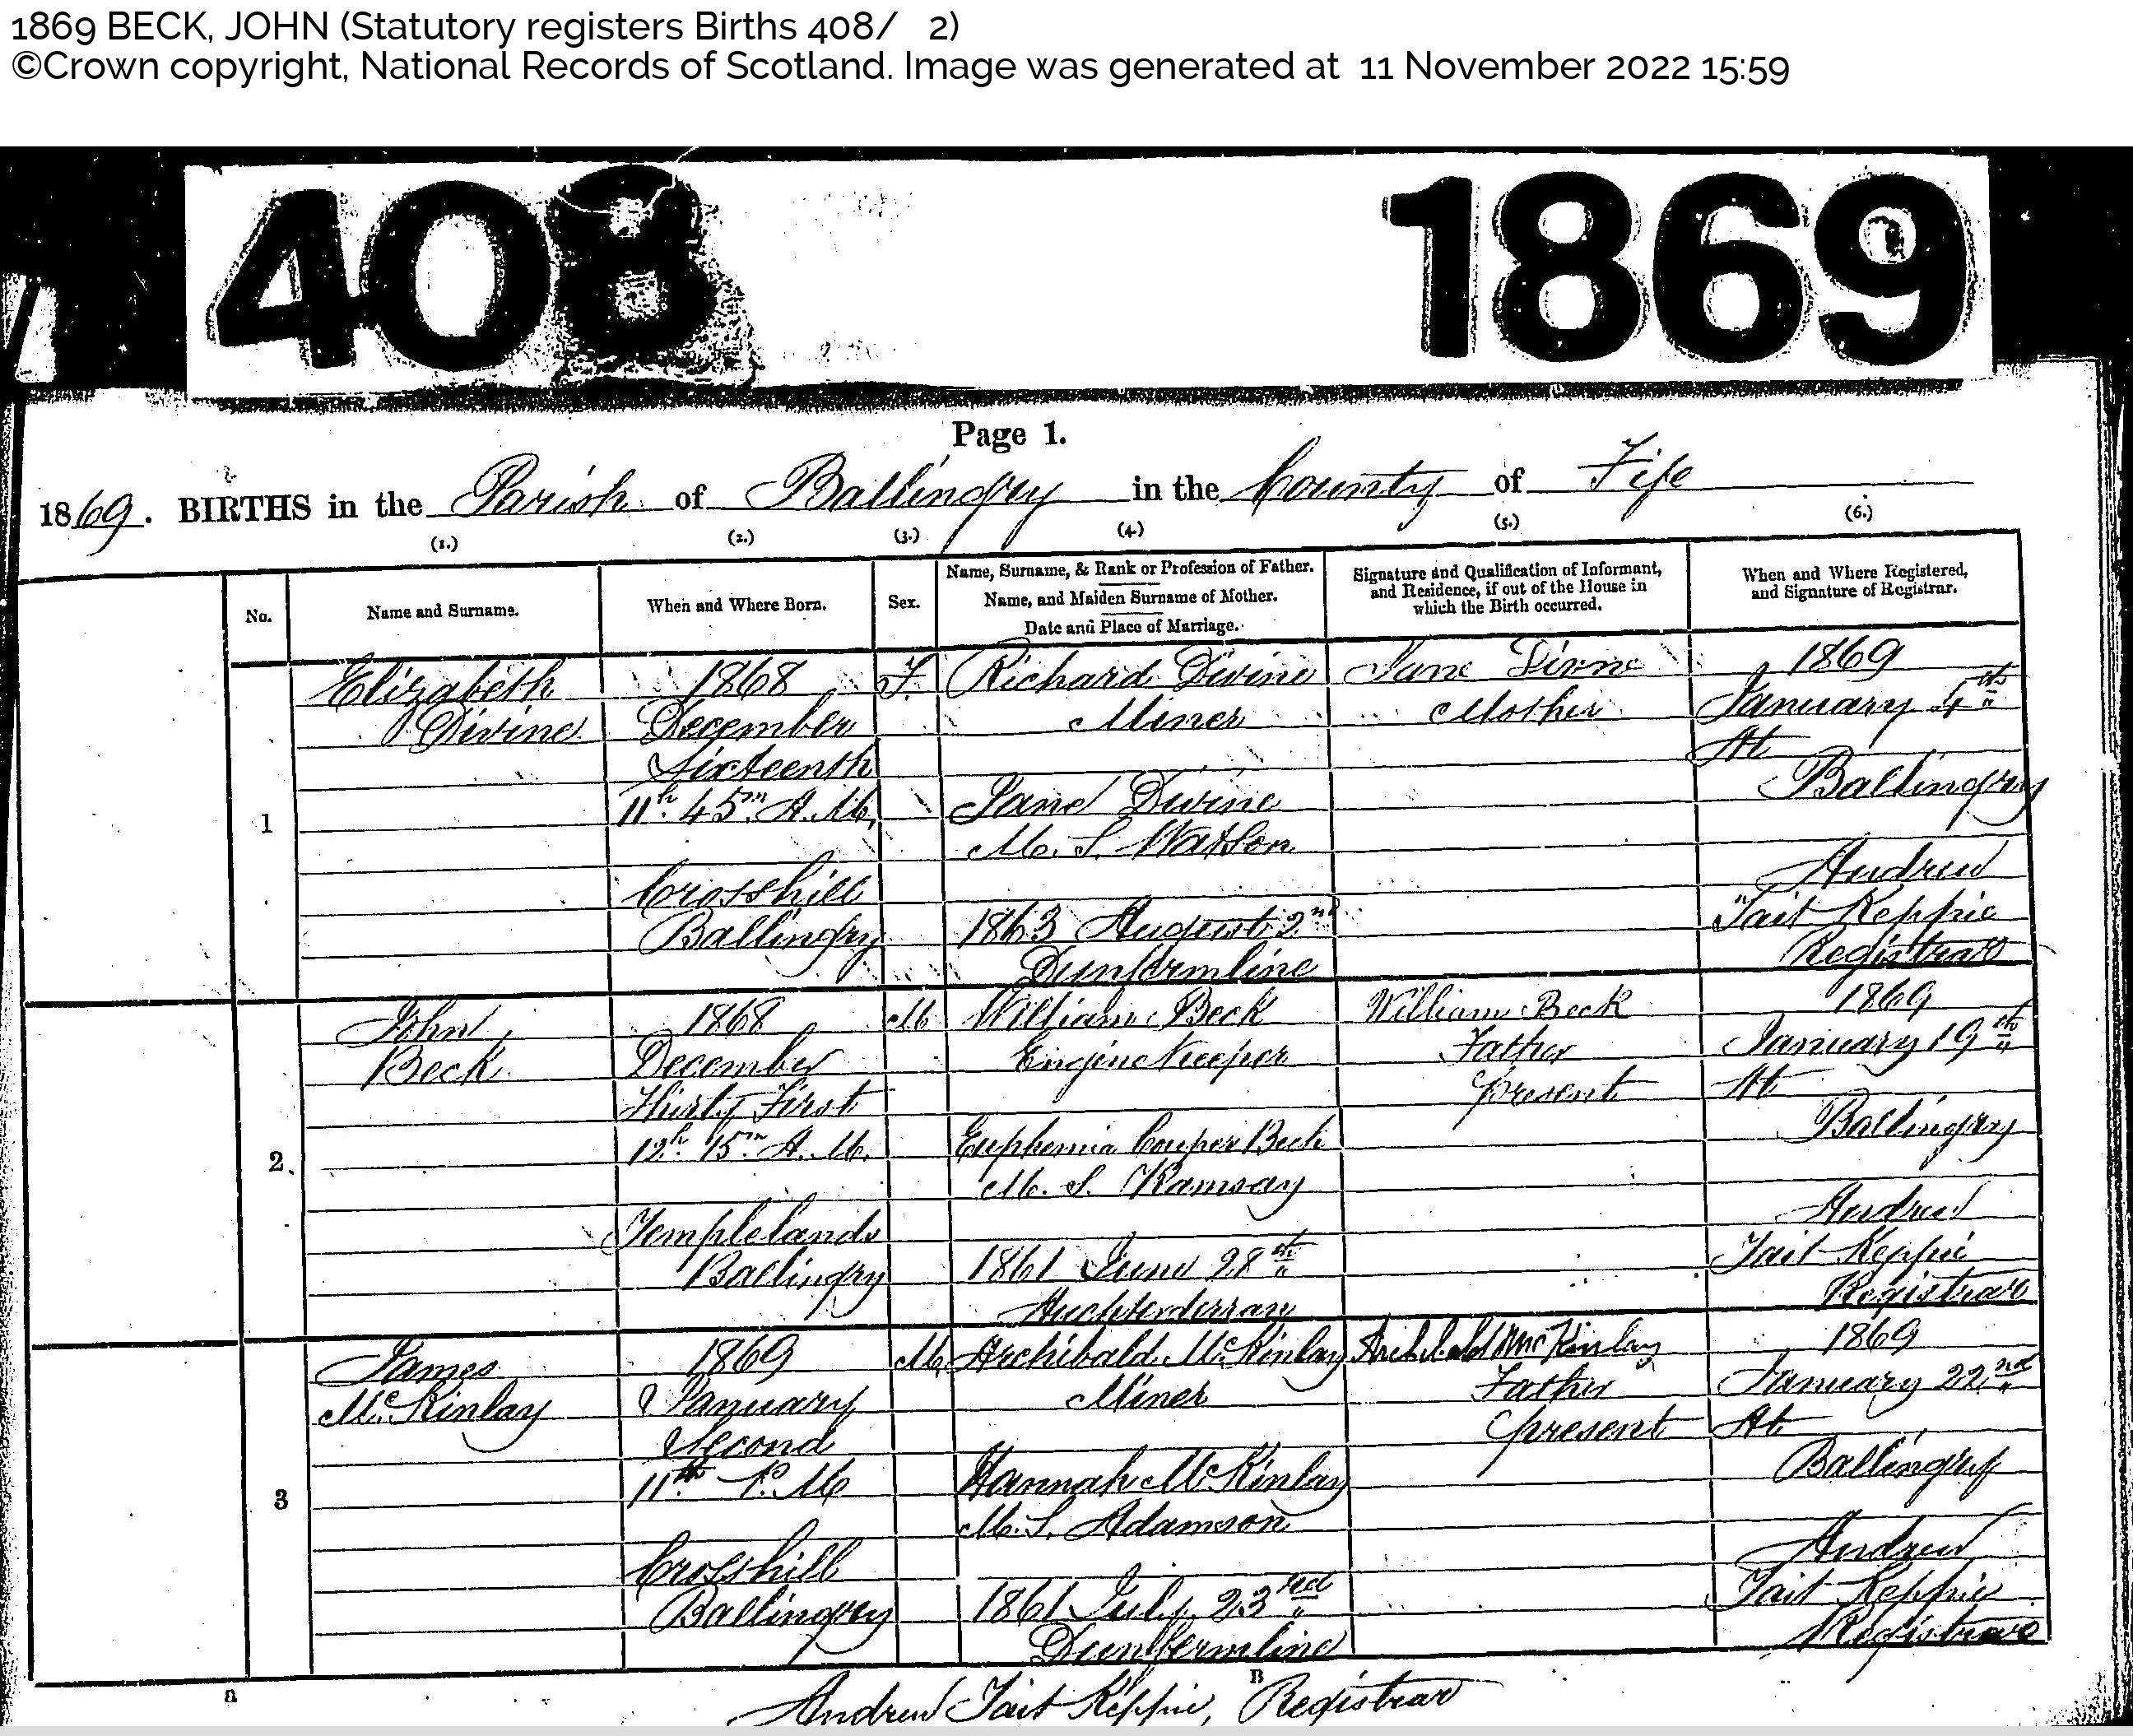 1869 BECK, JOHN (Statutory registers Births 408/ 2)
©Crown copyright, National Records of Scotland. Image was generated at 11 November 2022 15:59
408 1869
Page 1.
1869. BIRTHS in the Parish of Ballingry in the County of Fife
(1.) (2.) (3.) (4.) (5.) (6.)
No.
Name and Surname.
When and Where Born.
Sex.
Name, Surname, & Rank or Profession of Father.
Name, and Maiden Surname of Mother.
Date and Place of Marriage.
Signature and Qualification of Informant,
and Residence, if out of the House in
which the Birth occurred.
When and Where Registered,
and Signature of Registrar.
1
Elizabeth
Divine
1868
December
Sixteenth
11h. 45m. A.M.
Crosshill
Ballingry
F.
Richard Divine
Miner
Jane Divine
M. S. Watson
1863 August 2nd
Dunfermline
Jane Divine
Mother
1869
January 4th
At
Ballingry
Andrew
Tait Keppie
Registrar
2.
John
Beck
1868
December
Thirty First
12h. 15m. A.M.
Templelands
Ballingry
M
William Beck
Engine Keeper
Euphemia Couper Beck
M. S. Ramsay
1861 June 28th
Auchterderran
William Beck
Father
present
1869
January 19th
At
Ballingry
Andrew
Tait Keppie
Registrar
3
James
McKinlay
1869
January
Second
11h P.M
Crosshill
Ballingry
M.
Archibald McKinlay
Miner
Hannah McKinlay
M. S. Adamson
1861 July 23rd
Dunfermline
Archibald McKinlay
Father
present
1869
January 22nd
At
Ballingry
Andrew
Tait Keppie
Registrar
a B
Andrew Tait Keppie, Registrar